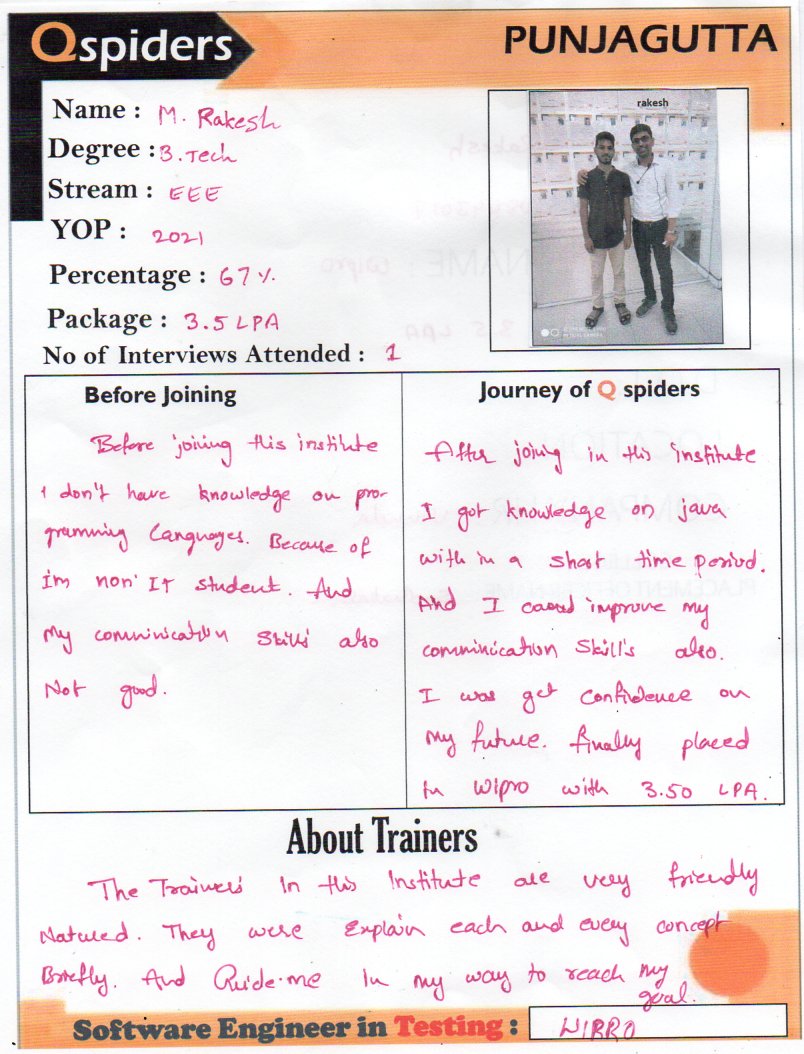 Qspiders
PUNJAGUTTA
Name : M. Rakesh
Degree : B.Tech
Stream : EEE
YOP : 2021
Percentage : 67%
Package : 3.5 LPA
No of Interviews Attended : 1
rakesh
Before Joining
Before joining this institute
I don't have knowledge on pro-
gramming languages. Because of
I'm non' IT student. And
My comminication skills also
Not good.
Journey of Q spiders
After joining in this institute
I got knowledge on java
with in a short time period.
And I improve my
comminication skill's also.
I was get confidence on
my future. finally placed
in Wipro with 3.50 LPA.
About Trainers
The Trainers in this institute are very friendly
Natured. They were Explain each and every concept
Briefly. And Guide me In my way to reach my
goal.
Software Engineer in Testing : WIPRO